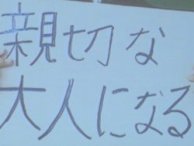 親切な
大人になる